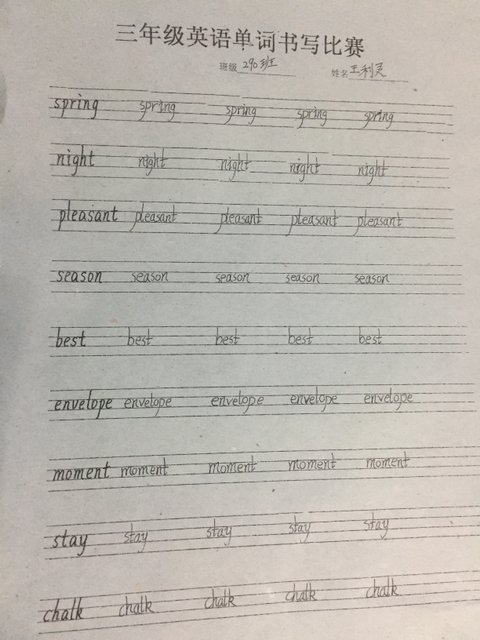 三年级英语单词书写比赛
班级 290班 姓名 王利灵
spring spring spring spring spring
night night night night night
pleasant pleasant pleasant pleasant pleasant
season season season season season
best best best best best
envelope envelope envelope envelope envelope
moment moment moment moment moment
stay stay stay stay stay
chalk chalk chalk chalk chalk